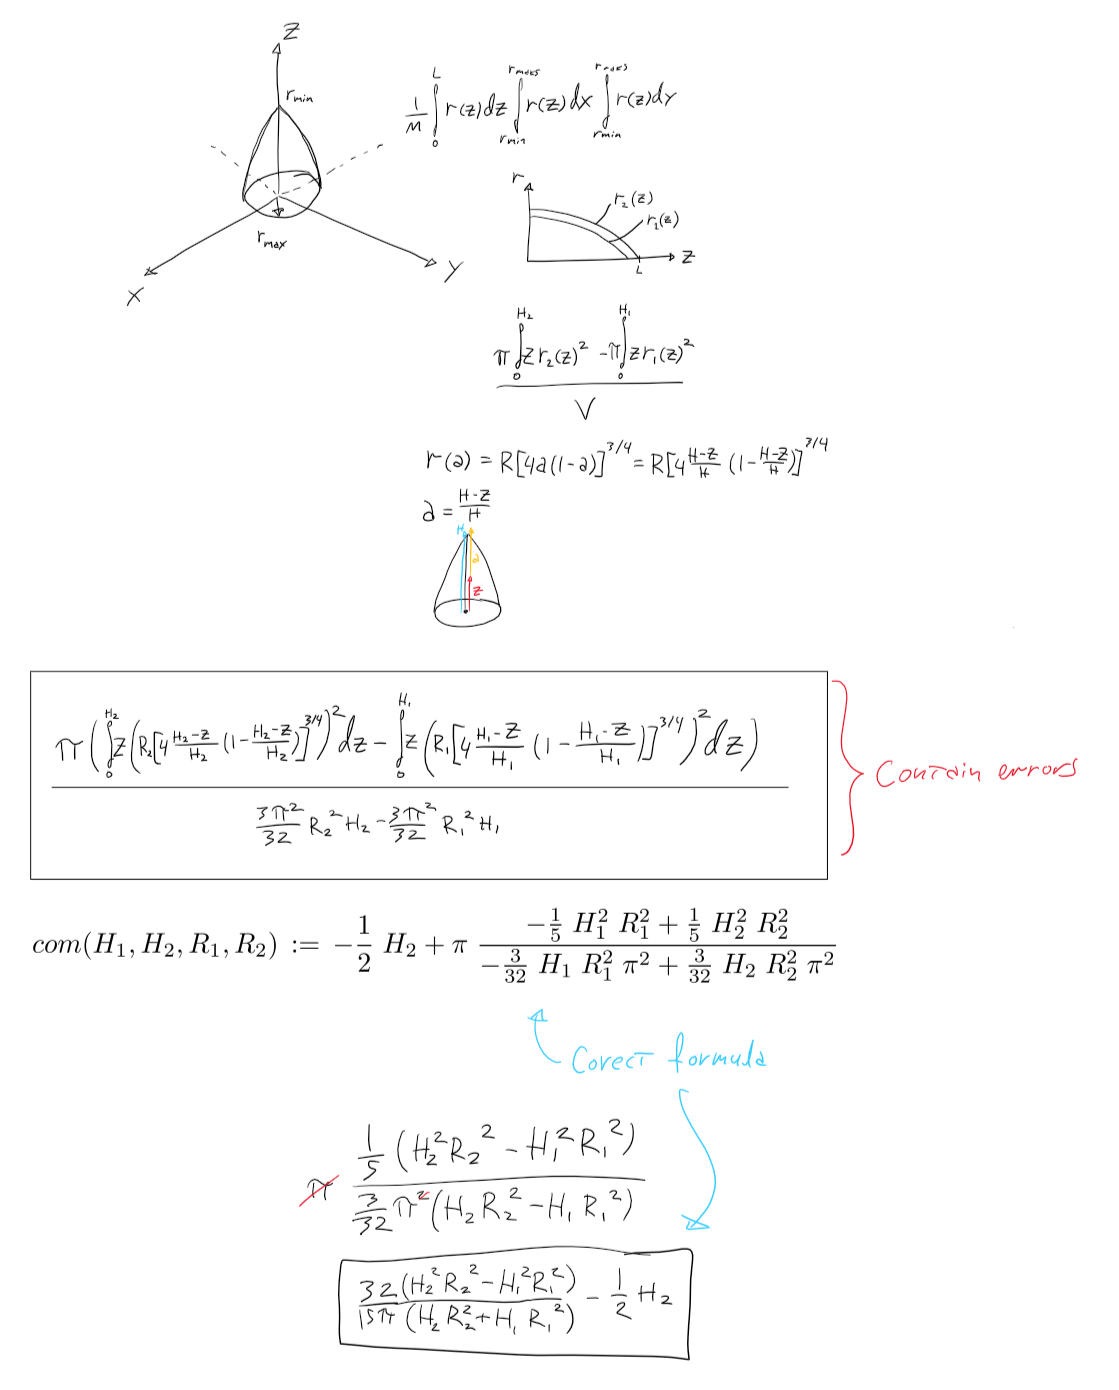 Z
r_min
r_max
X
Y
1/M ∫_0^L r(z)dz ∫_{rmin}^{rmaxs} r(z)dx ∫_{rmin}^{rmaxs} r(z)dy
r
r_2(z)
r_1(z)
L
Z
π ∫_0^{H_2} z r_2(z)^2 - π ∫_0^{H_1} z r_1(z)^2
V
r(a) = R[4a(1-a)]^{3/4} = R[4 (H-Z)/H (1 - (H-Z)/H)]^{3/4}
a = (H-Z)/H
H
a
z
π ( ∫_0^{H_2} z (R_2[4 (H_2-Z)/H_2 (1 - (H_2-Z)/H_2)]^{3/4})^2 dz - ∫_0^{H_1} z (R_1[4 (H_1-Z)/H_1 (1 - (H_1-Z)/H_1)]^{3/4})^2 dz )
3π^2/32 R_2^2 H_2 - 3π^2/32 R_1^2 H_1
Contain errors
com(H_1, H_2, R_1, R_2) := -1/2 H_2 + π (-1/5 H_1^2 R_1^2 + 1/5 H_2^2 R_2^2) / (-3/32 H_1 R_1^2 π^2 + 3/32 H_2 R_2^2 π^2)
Corect formula
π 1/5 (H_2^2 R_2^2 - H_1^2 R_1^2)
3/32 π^2 (H_2 R_2^2 - H_1 R_1^2)
32 (H_2^2 R_2^2 - H_1^2 R_1^2) / 15π (H_2 R_2^2 + H_1 R_1^2) - 1/2 H_2